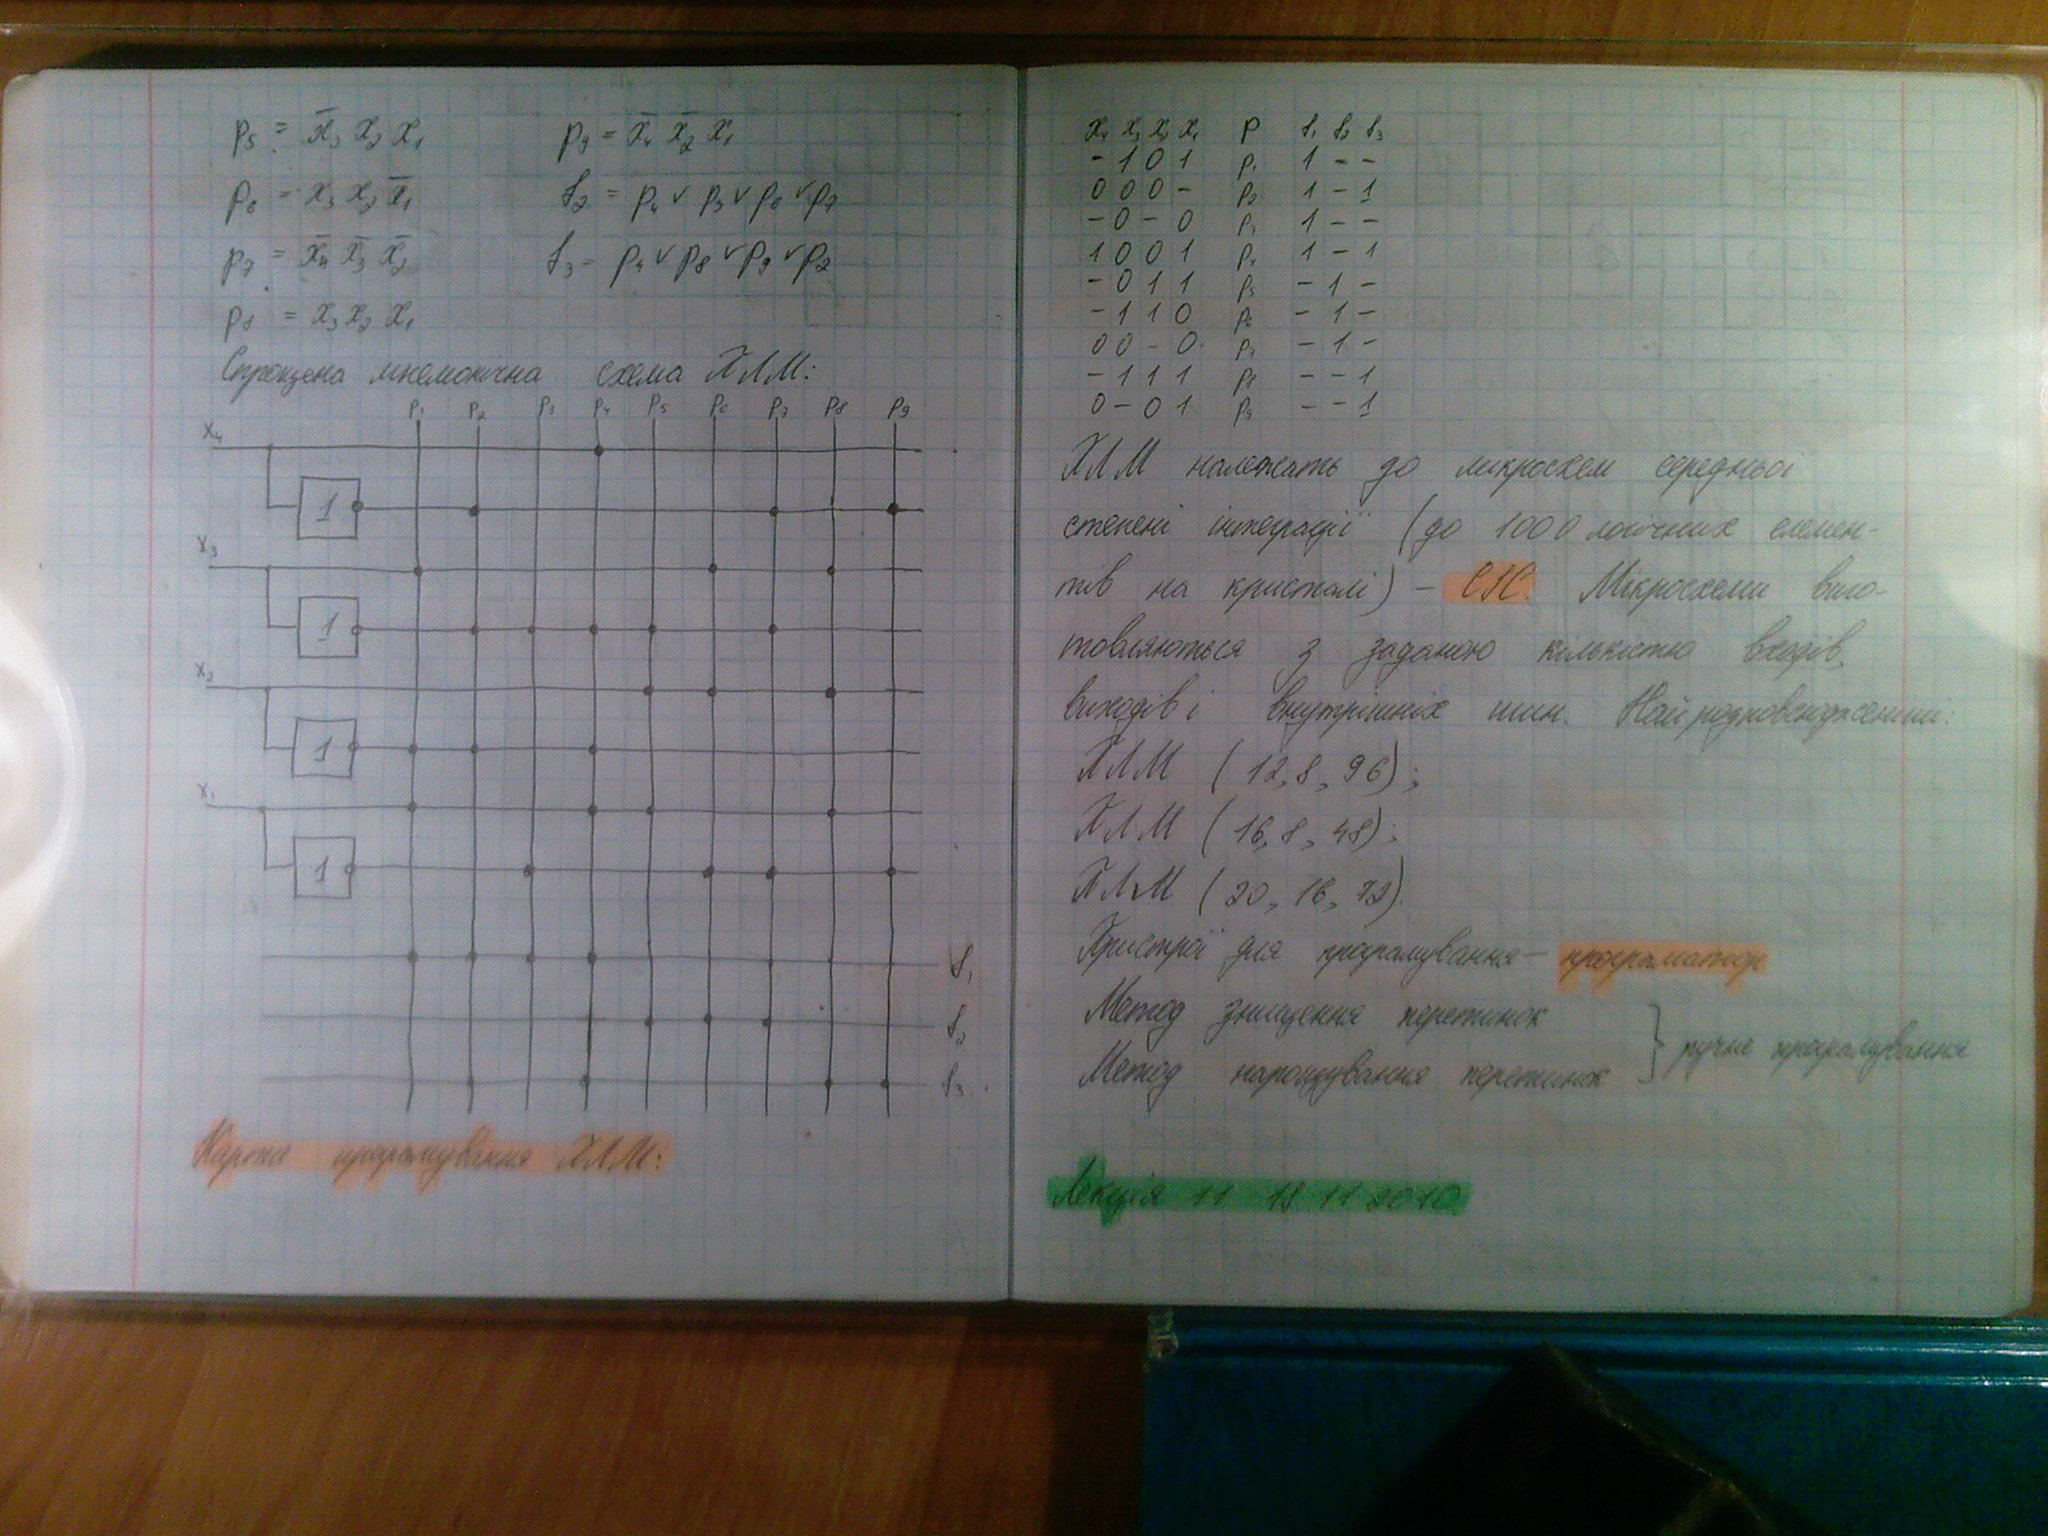 p₅ = x̄₃ x₂ x₁
p₆ = x₃ x₂ x̄₁
p₇ = x̄₄ x̄₃ x̄₂
p₈ = x₃ x₂ x₁
p₉ = x̄₄ x̄₂ x₁
f₂ = p₄ ∨ p₅ ∨ p₆ ∨ p₇
f₃ = p₄ ∨ p₈ ∨ p₉ ∨ p₂
Спрощена мнемонічна схема ПЛМ:
P₁ P₂ P₃ P₄ P₅ P₆ P₇ P₈ P₉
X₄
1
X₃
1
X₂
1
X₁
1
f₁
f₂
f₃
Карта програмування ПЛМ:
x₄ x₃ x₂ x₁ P f₁ f₂ f₃
- 1 0 1 p₁ 1 - -
0 0 0 - p₂ 1 - 1
- 0 - 0 p₃ 1 - -
1 0 0 1 p₄ 1 - 1
- 0 1 1 p₅ - 1 -
- 1 1 0 p₆ - 1 -
0 0 - 0 p₇ - 1 -
- 1 1 1 p₈ - - 1
0 - 0 1 p₉ - - 1
ПЛМ належать до мікросхем середньої
степені інтеграції (до 1000 логічних елемен-
тів на кристалі) – СІС. Мікросхеми виго-
товляються з заданою кількістю входів,
виходів і внутрішніх шин. Найрозповсюдженіші:
ПЛМ (12, 8, 96);
ПЛМ (16, 8, 48);
ПЛМ (20, 16, 72).
Пристрої для програмування – програматор
Метод знищення перетинок
Метод нарощування перетинок
ручне програмування
Лекція 11 18 11 2010